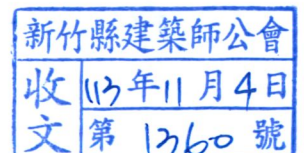 新竹縣建築師公會
收文
113年11月4日
第 1360 號